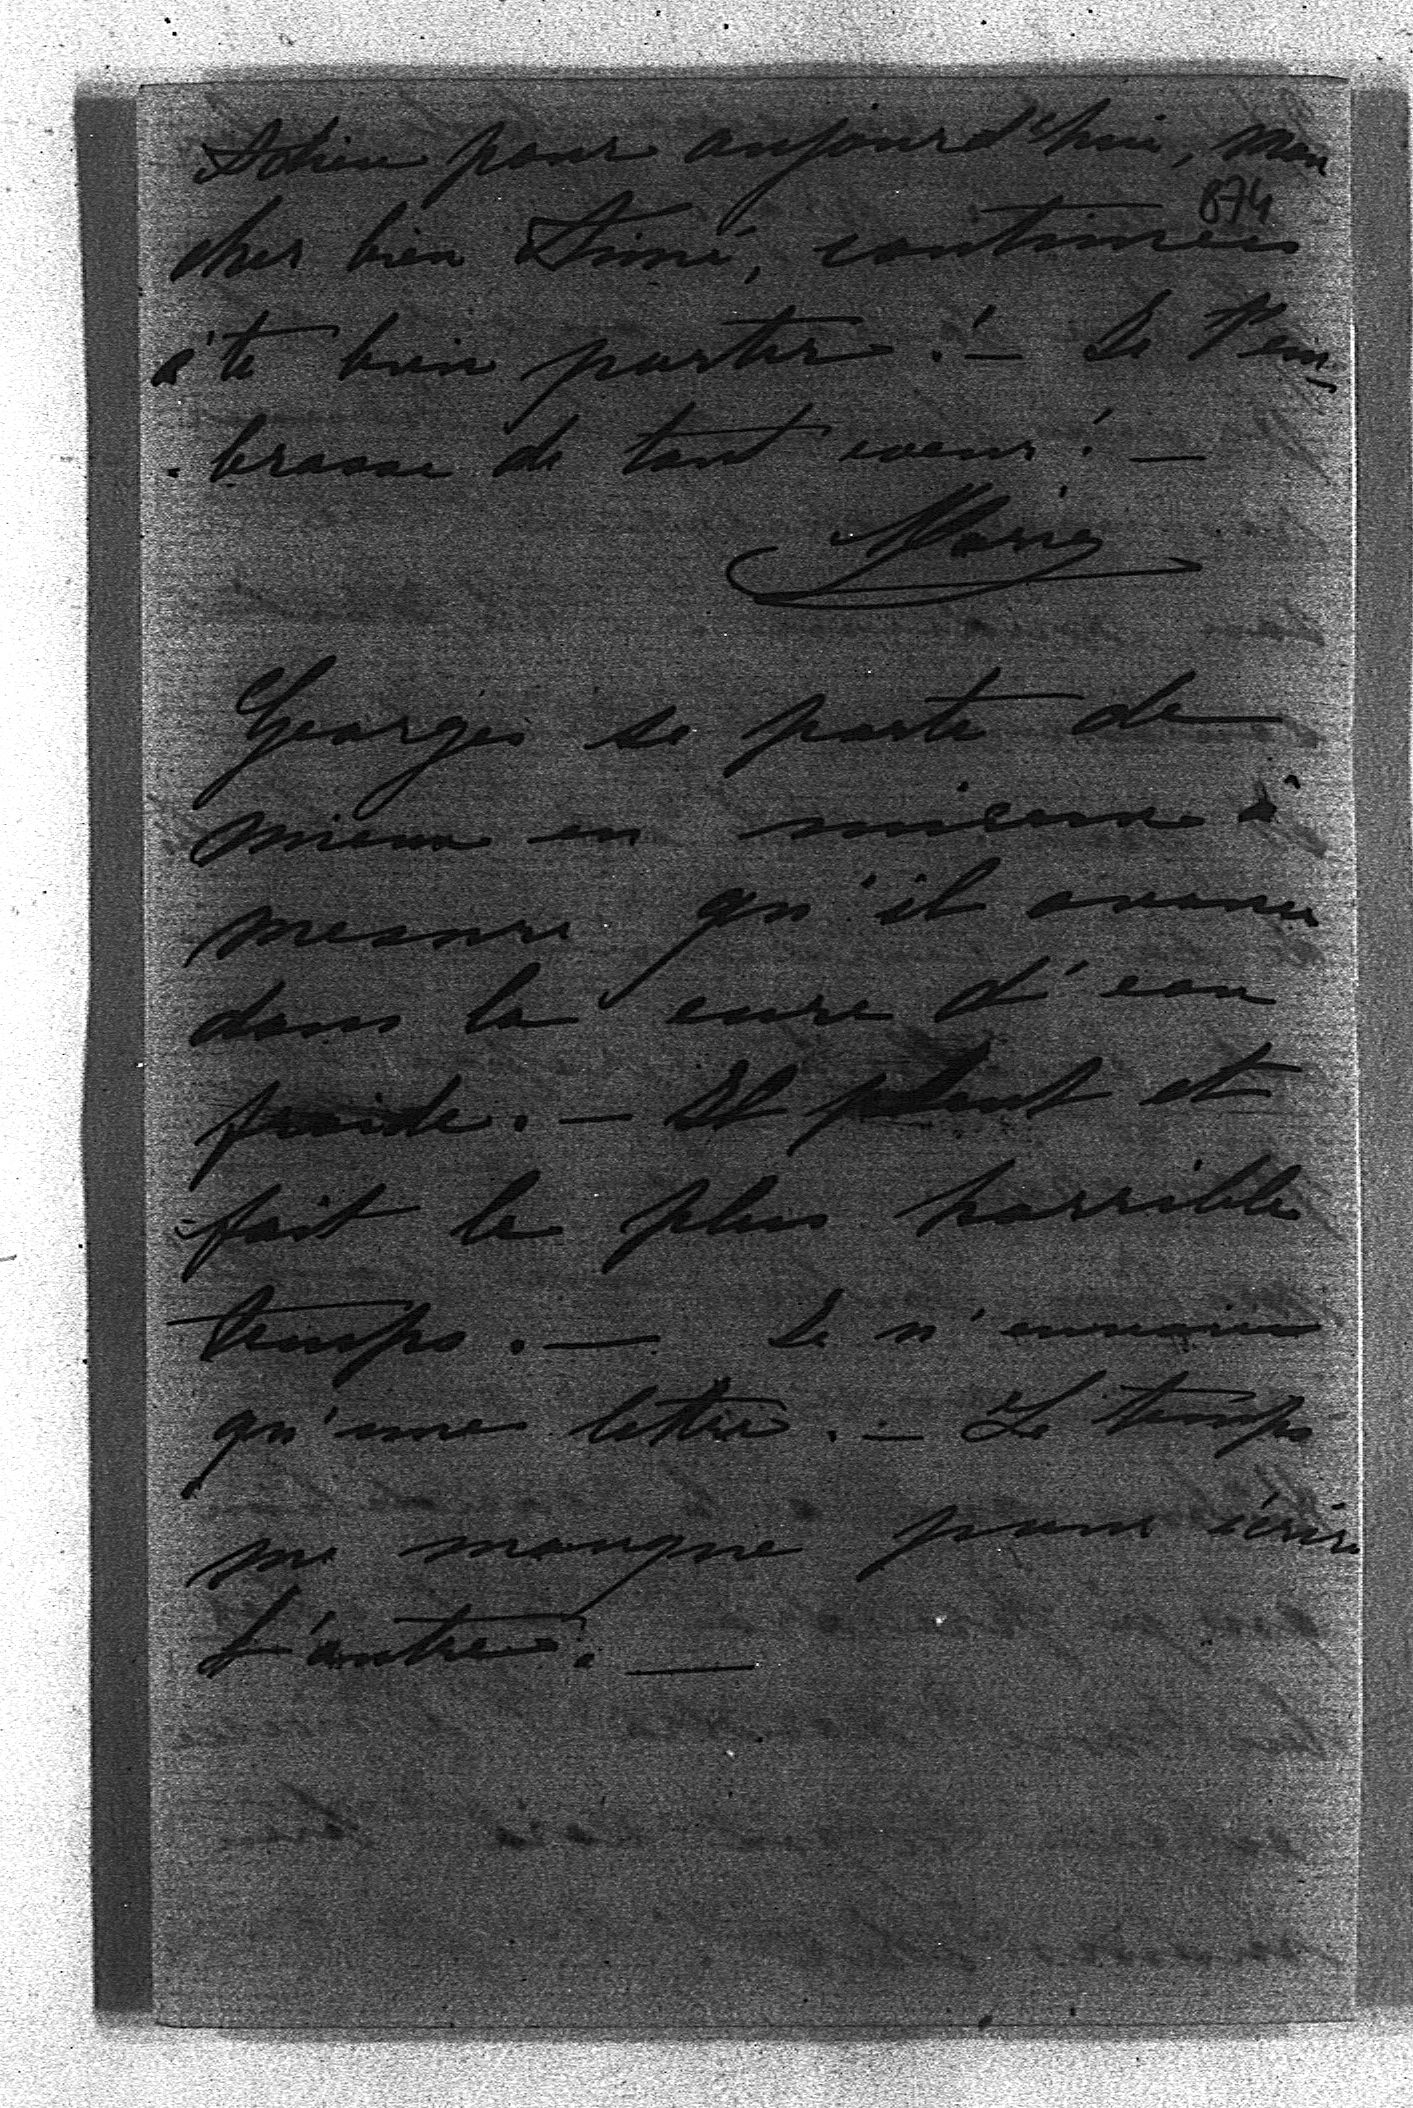 Adieu pour aujourd'hui, mon
874
cher bien Aimé, continues
à te bien porter! — Je t'em-
brasse de tout coeur! —
Marie
Georges se porte de
mieux en mieux à
mesure qu'il avance
dans la cure d'eau
froide. — Il pleut et
fait le plus horrible
temps. — Je n'envoie
qu'une lettre. — Le temps
me manque pour écrire
l'autre. —